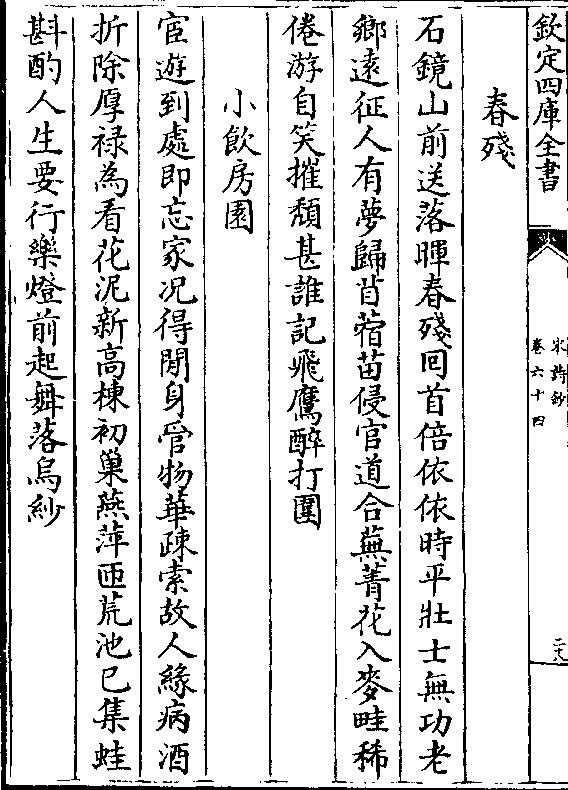 欽定四庫全書
宋詩鈔
卷六十四
二八
春殘
石鏡山前送落暉春殘回首倍依依時平壯士無功老
鄉遠征人有夢歸苜蓿苗侵官道合蕪菁花入麥畦稀
倦游自笑摧頽甚誰記飛鷹醉打圍
小飲房園
宦遊到處即忘家况得閒身管物華疎索故人緣病酒
折除厚祿為看花泥新高棟初巢燕萍匝荒池已集蛙
斟酌人生要行樂燈前起舞落烏紗